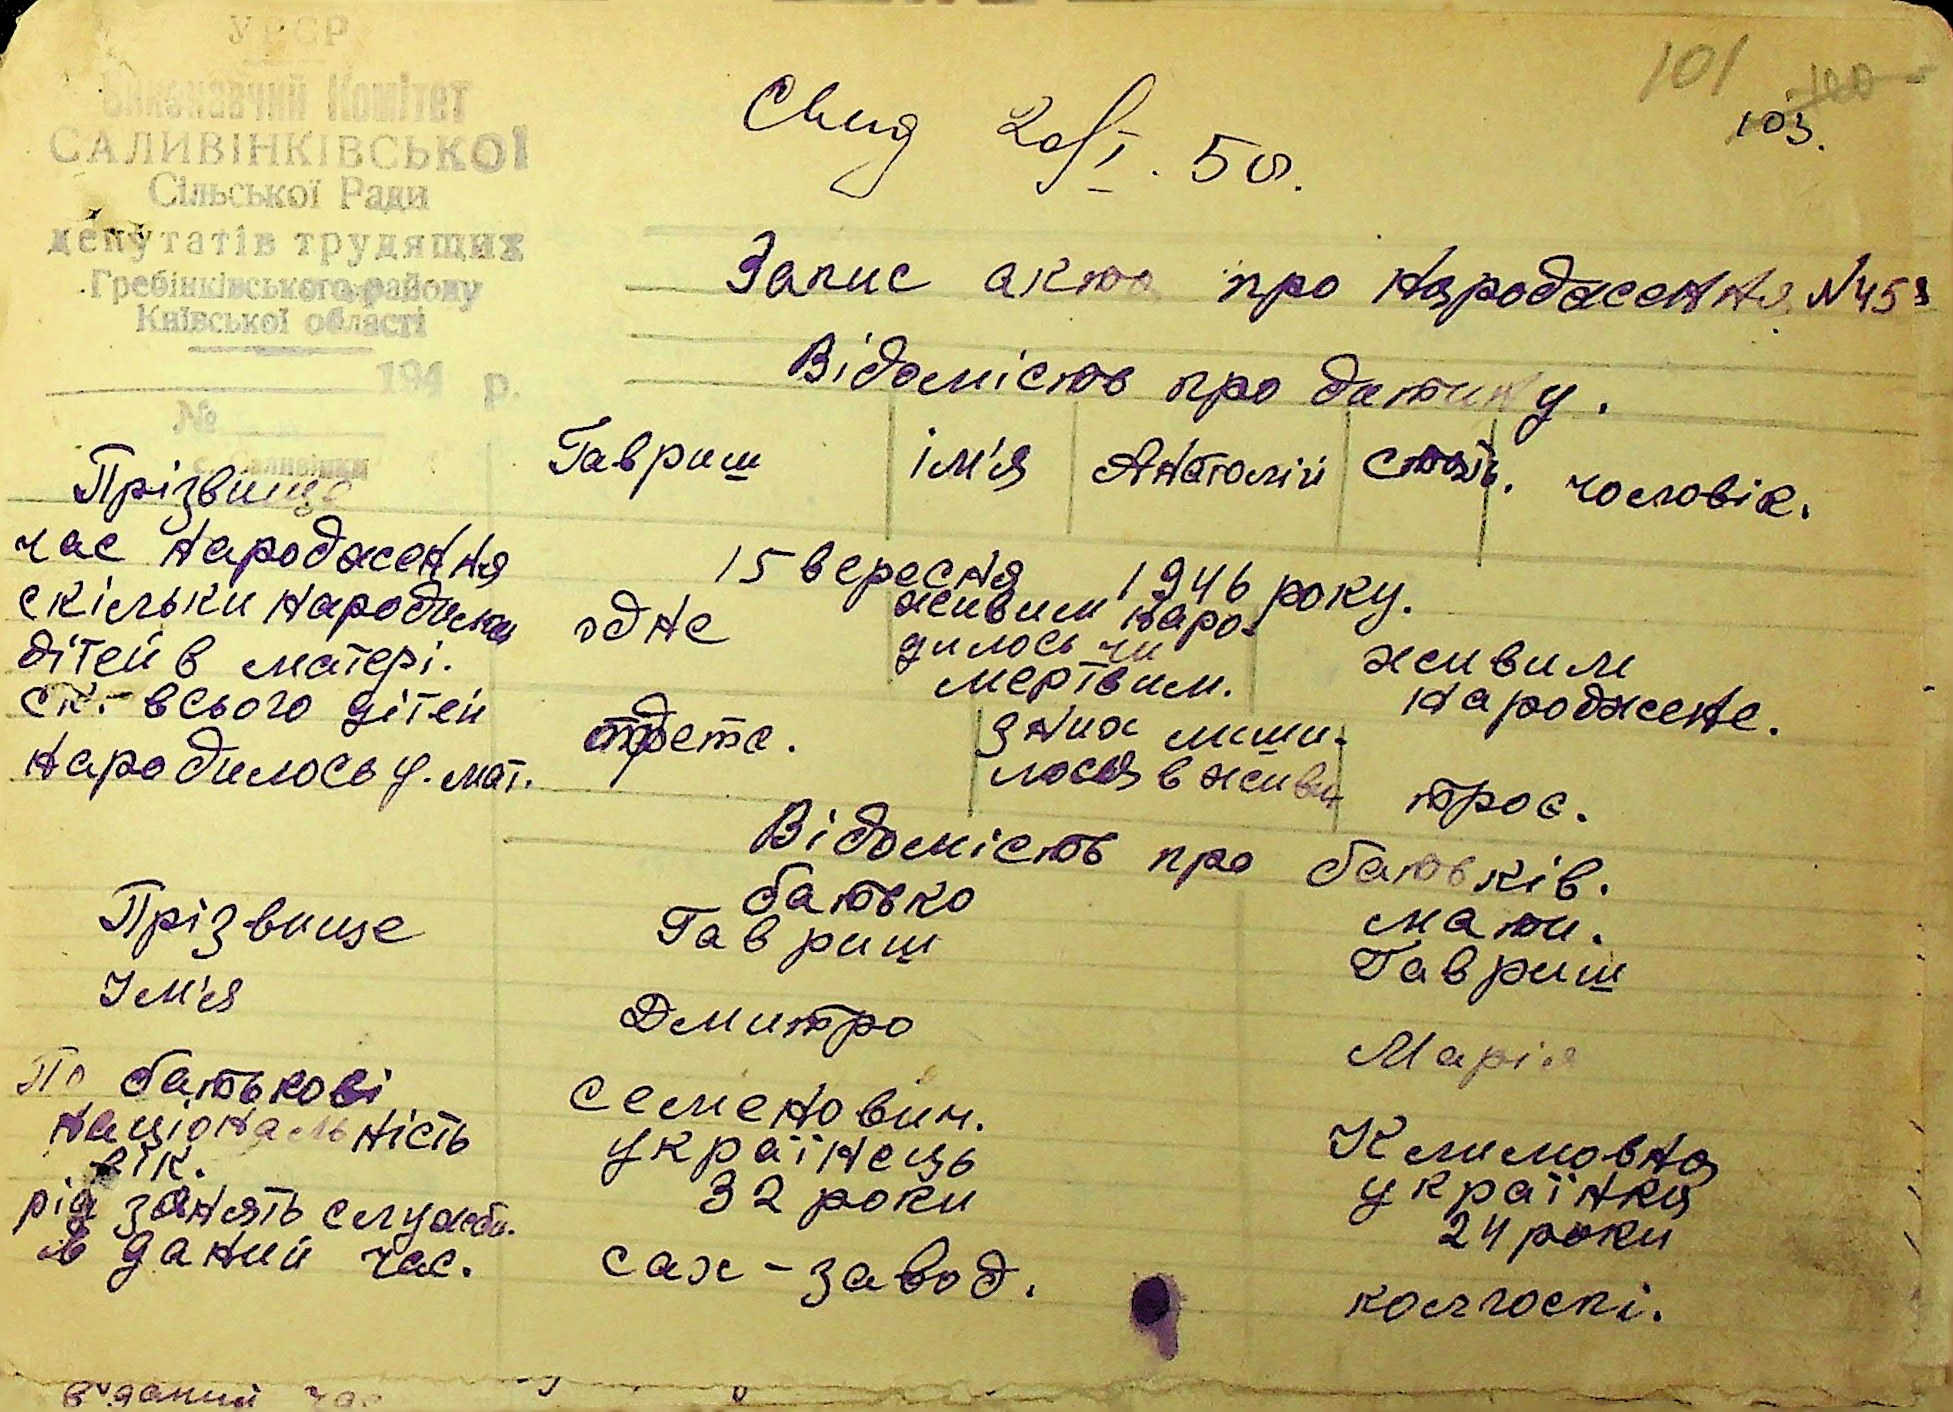 УРСР
Виконавчий Комітет
САЛИВІНКІВСЬКОЇ
Сільської Ради
депутатів трудящих
Гребінківського району
Київської області
194 р.
№
с. Саливінки
101
100
103.
Свид 20/I. 50.
Запис акта про народження N 45
Відомість про дитину.
Прізвище Гавриш ім'я Анатолій стать. чоловік.
час народження 15 вересня 1946 року.
скільки народилось дітей в матері. одне живим народилось чи мертвим. живим народжене.
ск. всього дітей народилось у. мат. третє. з них лиши- лося в живих троє.
Відомість про батьків.
батько мати.
Прізвище Гавриш Гавриш
Ім'я Дмитро Марія
По батькові Семенович. Климовна
національність українець українка
вік. 32 роки 24 роки
рід занять службн. в даний час. сах-завод. колгоспі.
в даний час